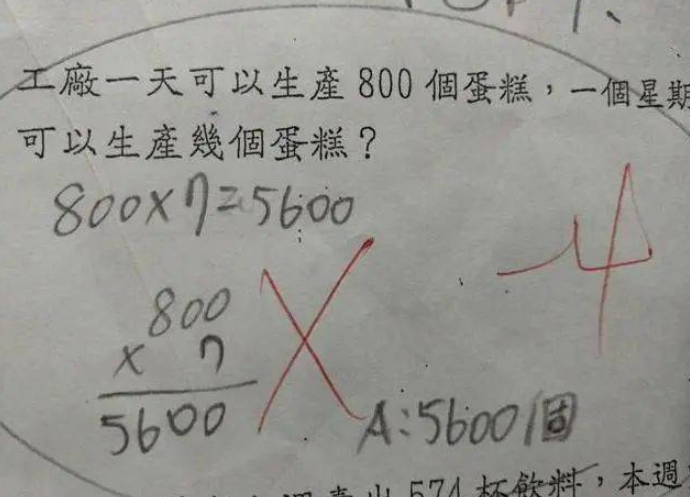 工廠一天可以生產800個蛋糕，一個星期
可以生產幾個蛋糕？
800×7=5600
-4
800
× 7
5600
A:5600個
574杯飲料，本週